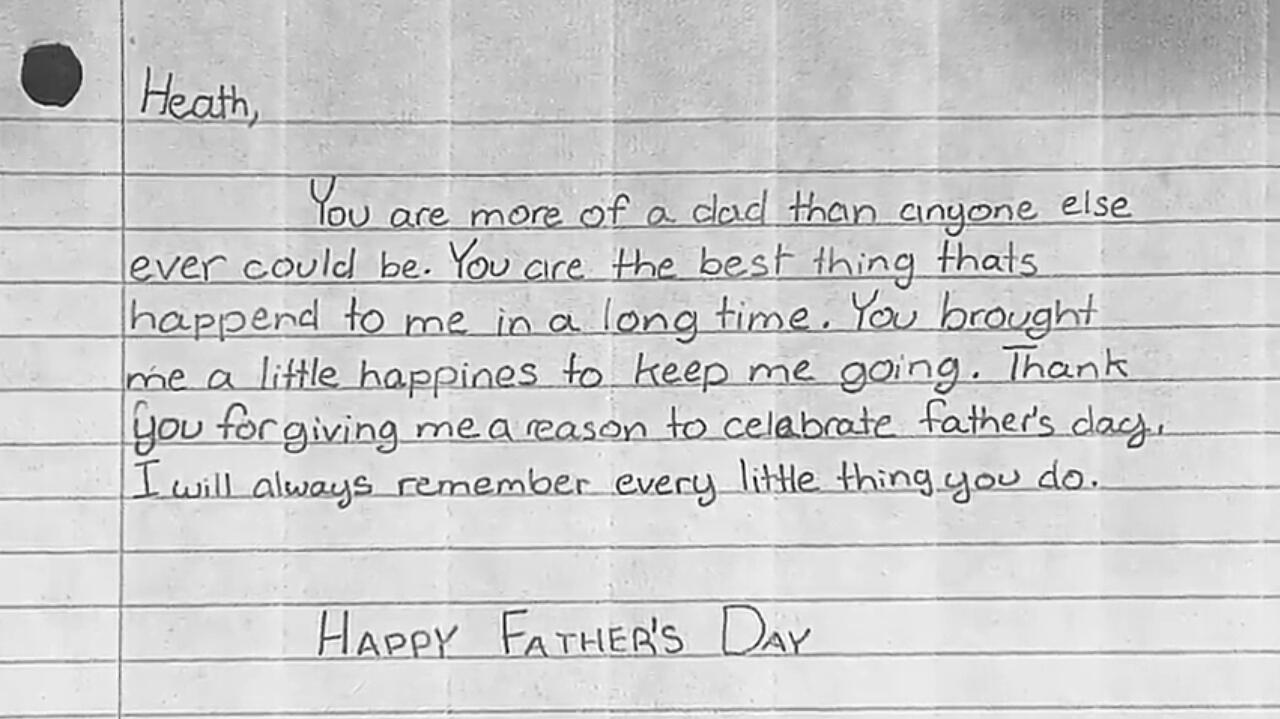 Heath,
You are more of a dad than anyone else
ever could be. You are the best thing thats
happend to me in a long time. You brought
me a little happines to keep me going. Thank
you for giving me a reason to celabrate father's day.
I will always remember every little thing you do.
HAPPY FATHER'S DAY